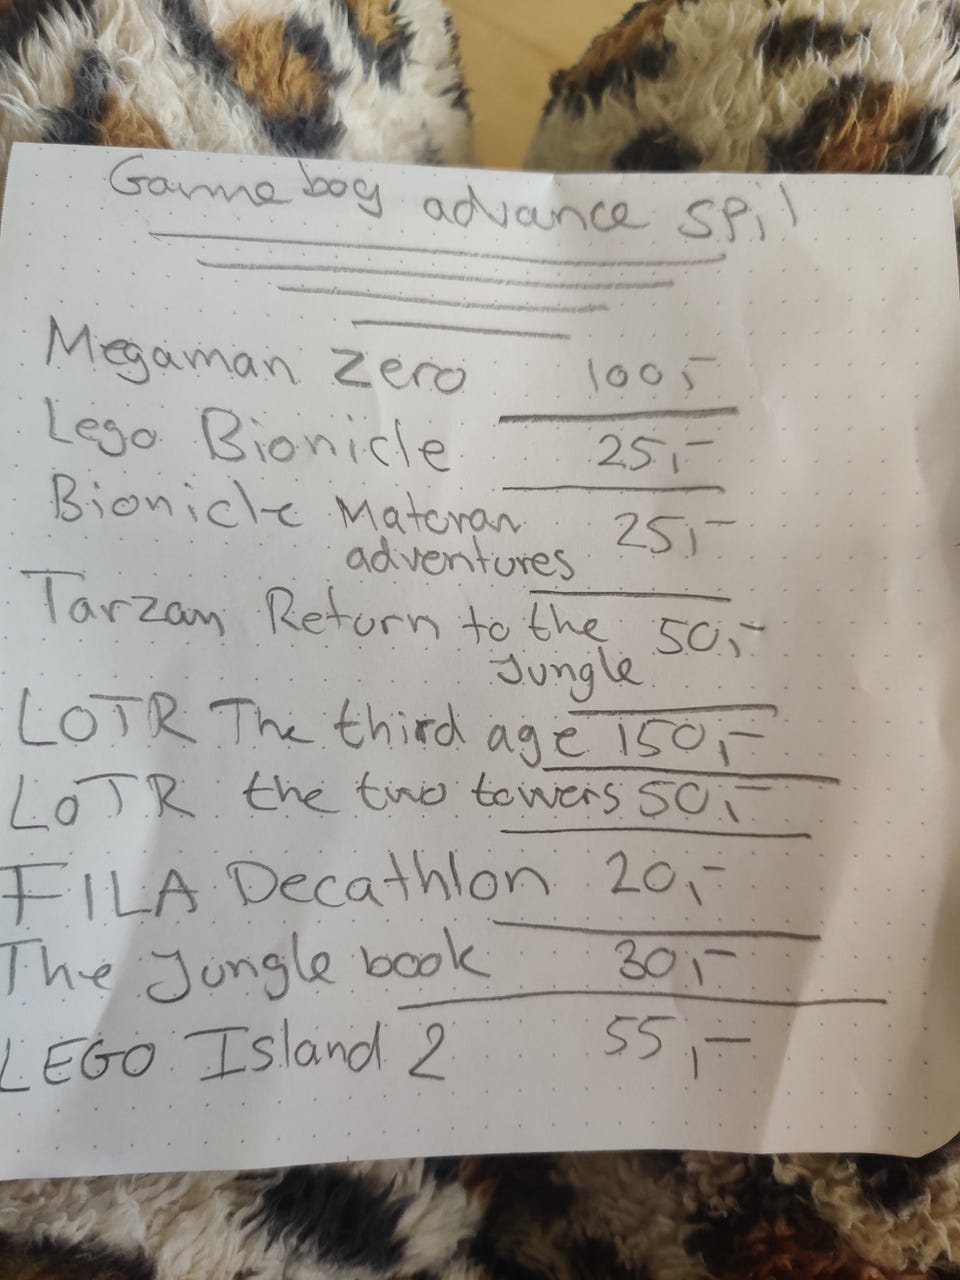 Gameboy advance spil
Megaman Zero 100,-
Lego Bionicle 25,-
Bionicle Matoran 25,-
adventures
Tarzan Return to the 50,-
Jungle
LOTR The third age 150,-
LOTR the two towers 50,-
FILA Decathlon 20,-
The Jungle book 30,-
LEGO Island 2 55,-